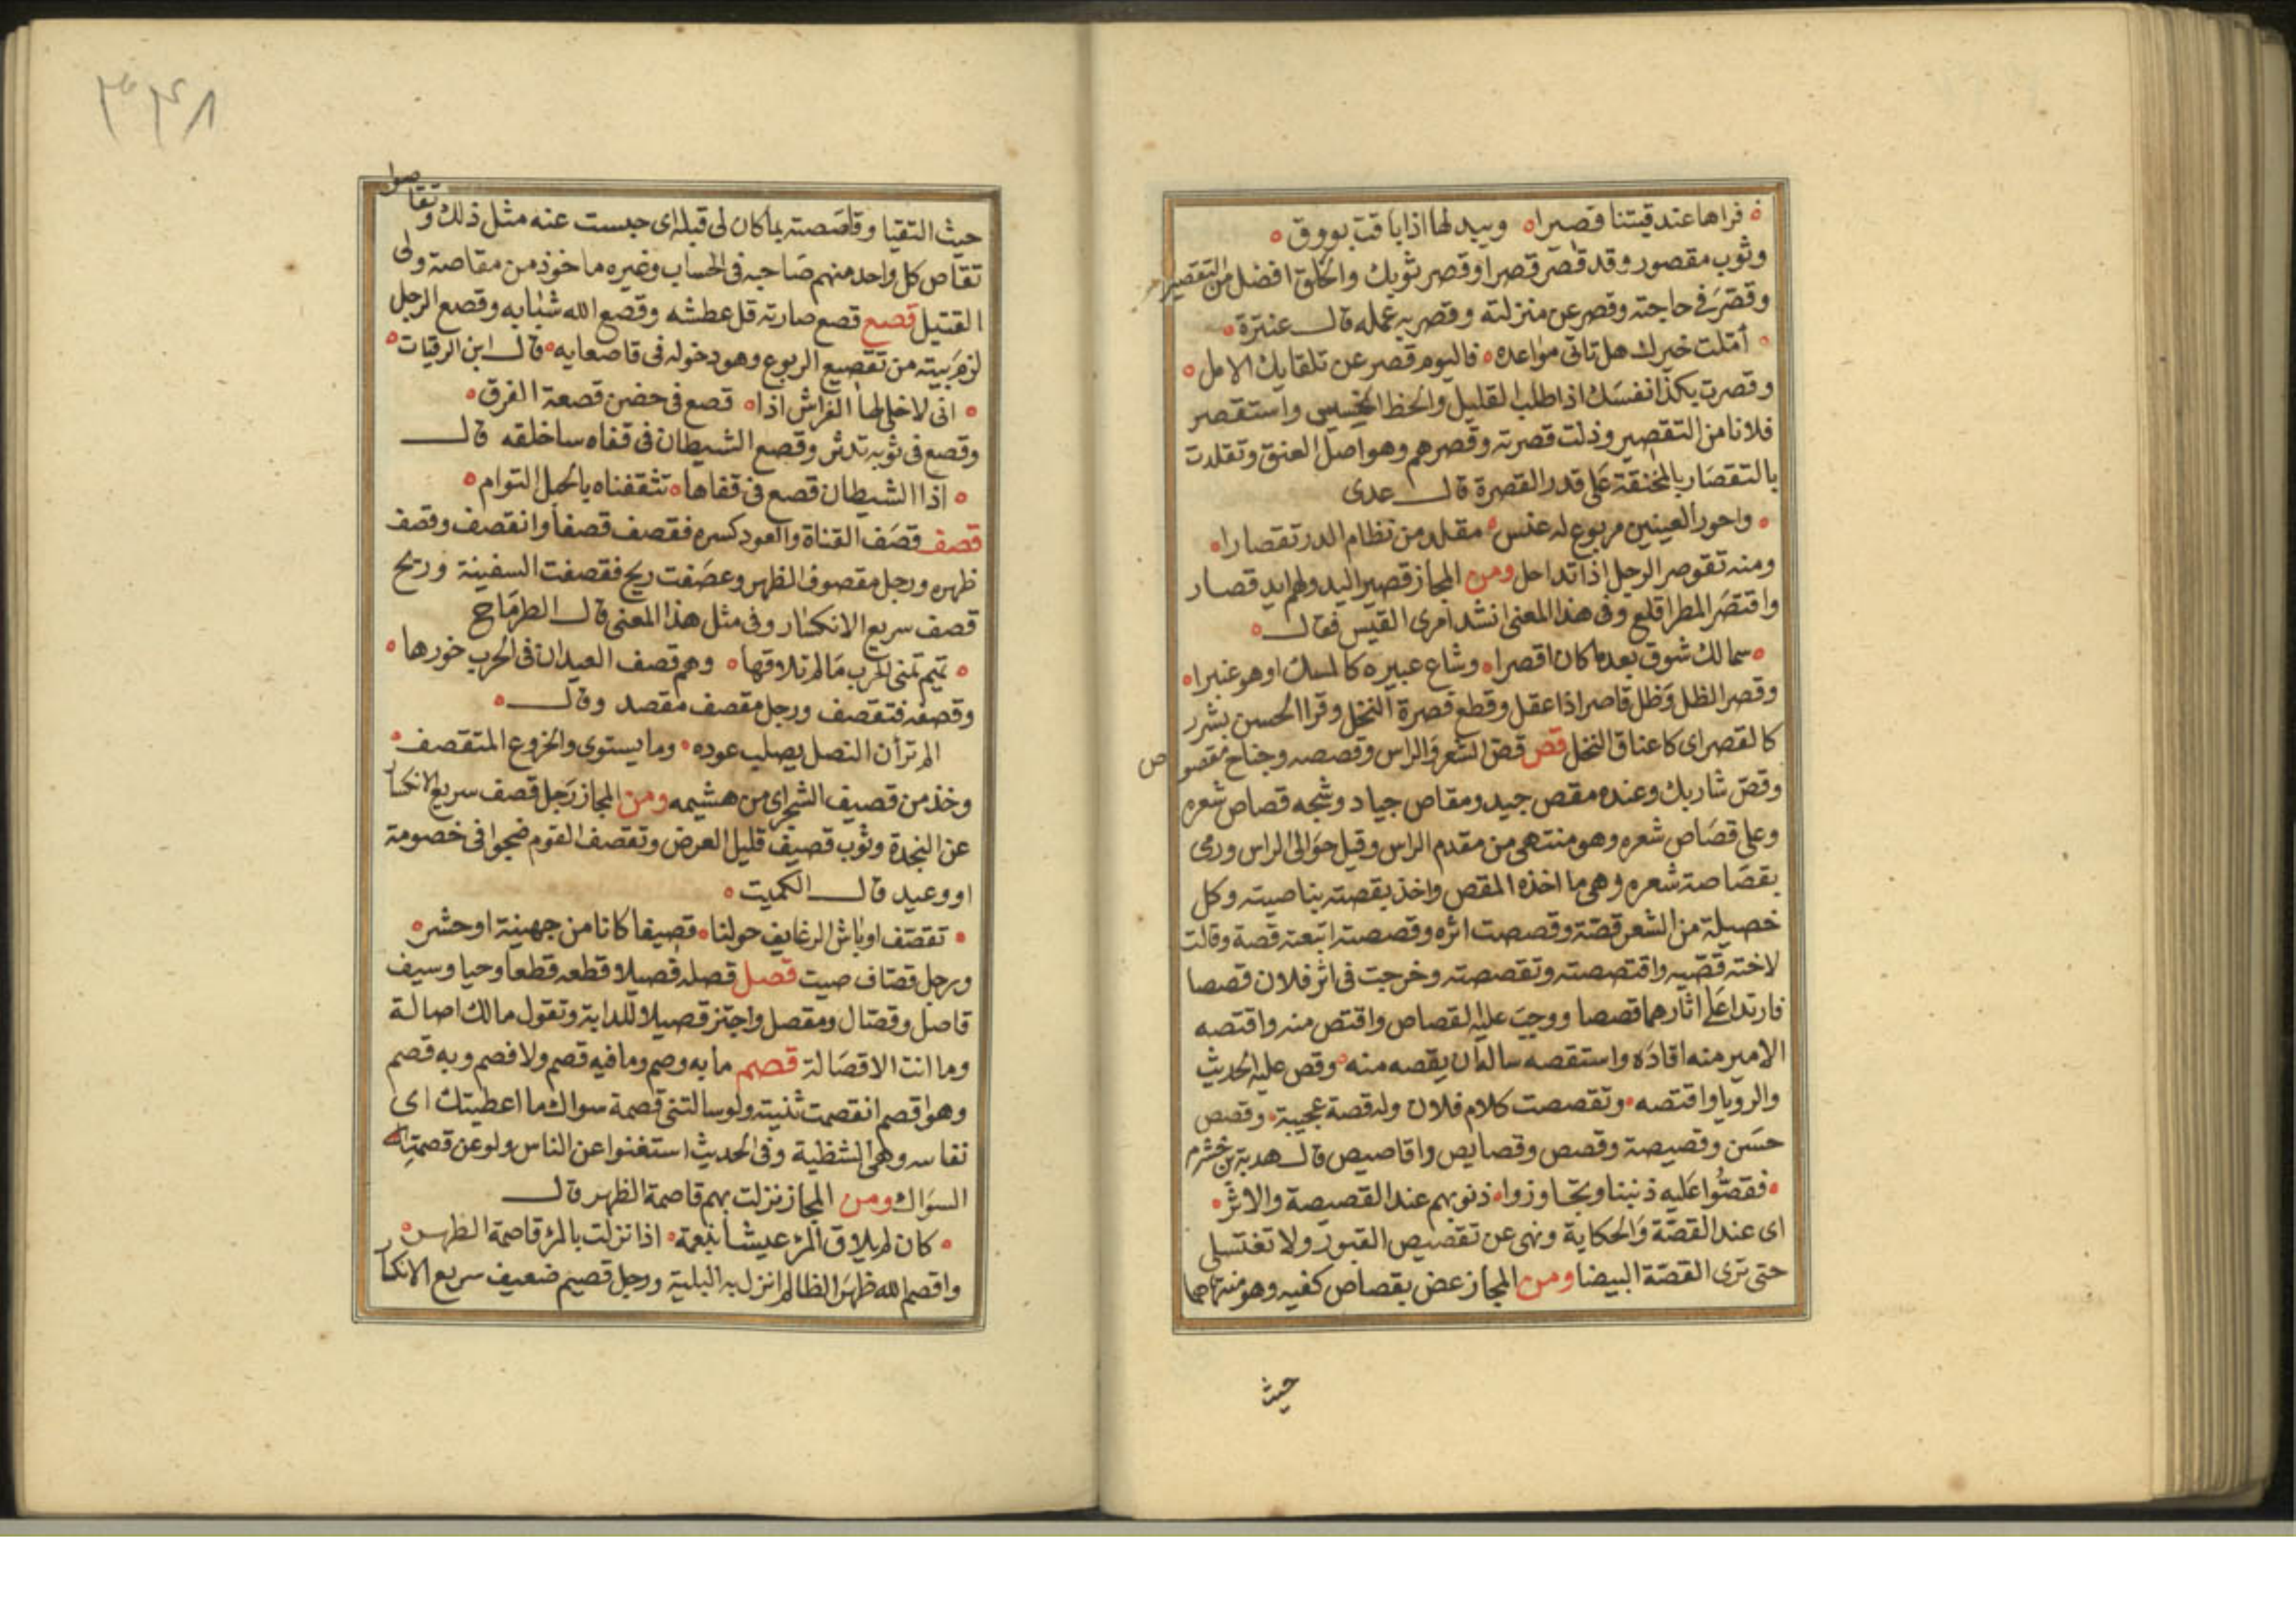 فراها عند قيتنا قصيرا ه وبيد لها اذا باقت بووق ه
وثوب مقصور وقد قصّر قصرا وقصر ثوبك والحلق افضل من التقصير
وقصّر في حاجته وقصر عن منزلته وقصر به عمله قال عنترة ه
ه أمّلت خيرك هل تاتى مواعده ه فاليوم قصر عن تلقايك الامل ه
وقصرت بكذا نفسك اذا طلب القليل والحظ الخسيس واستقصر
فلانا من التقصير وذلت قصرته وقصرهم وهو اصل العنق وتقلدت
بالتقصار بالمخنقة على قدر القصرة قال عدى
ه واحور العينين مربوع له غنس ه مقلد من نظام الدر تقصارا ه
ومنه تقوصر الرجل اذا تداخل ومن المجاز قصير اليد ولهم ايد قصار
واقتصر المطر اقلع وفى هذا المعنى انشد امرى القيس فقال ه
ه سمالك شوق بعد ما كان اقصرا ه وشاع عبيره كالمسك او هو عنبرا ه
وقصر الظل وظل قاصر اذا عقل وقطع قصرة النخل وقرا الحسن بشرر
كالقصر اى كاعناق النخل قص قصّ الشعر والراس وقصصه وجناح مقصو
ص
وقصّ شاربك وعنده مقص جيد ومقاص جياد وشجه قصاص شعره
وعلى قصاص شعره وهو منتهى من مقدم الراس وقيل حوالى الراس ورمى
بقصاصة شعره وهى ما اخذه المقص واخذ بقصته بناصيته وكل
خصيلة من الشعر قصّة وقصصت اثره وقصصته اتبعته قصة وقالت
لاخته قصّيه واقتصصته وتقصصته وخرجت فى اثر فلان قصصا
فارتدا على اثارهما قصصا ووجب عليه القصاص واقتص منه واقتصه
الامير منه اقاده واستقصه ساله ان يقصه منه ه وقص عليه الحديث
والرويا واقتصه ه وتقصصت كلام فلان وله قصة عجيبة ه وقصص
حسن وقصيصة وقصص وقصايص واقاصيص قال هدبة بن خشرم
ه فقصّوا عليه ذنبنا وتجاوزوا ه ذنوبهم عند القصيصة والاثر ه
اى عند القصّة والحكاية ونهى عن تقصيص القبور ولا تغتسلى
حتى ترى القصّة البيضا ومن المجاز عض بقصاص كفيه وهو منتهاهما
حيث
٣٤٨
حيث التقيا وقاصصته بما كان لى قبله اى حبست عنه مثل ذلك و
تقاصوا
تقاص كل واحد منهم صاحبه فى الحساب وغيره ماخوذ من مقاصة ولى
القتيل قصع قصع صارته قل عطشه وقصع الله شبابه وقصع الرجل
لزم بيته من تقصيع الربوع وهو دخوله فى قاصعايه ه قال ابن الرقيات ه
ه انى لاخلى لها الفراش اذا ه قصع فى حضن قصعة الفرق ه
وقصع فى ثوبه تدثر وقصع الشيطان فى قفاه ساخلقه قال
ه اذا الشيطان قصع فى قفاها ه تثقفناه بالحبل التوام ه
قصف قصف القناة والعود كسره فقصف قصفا وانقصف وقصف
ظهره ورجل مقصوف الظهر وعصفت ريح فقصفت السفينة وريح
قصف سريع الانكسار وفى مثل هذا المعنى قال الطرماح
ه تميم تمنى الحرب مالم تلاقها ه وهم قصف العيدان فى الحرب خورها ه
وقصفه فتقصف ورجل مقصف مقصد وقال ه
الم تر أن النصل يصلب عوده ه وما يستوى والخروع المتقصف ه
وخذ من قصيف الشجر اى من هشيمه ومن المجاز رجل قصف سريع الانكسار
عن النجدة وثوب قصيف قليل العرض وتقصف القوم ضجوا فى خصومة
او وعيد قال الكميت ه
ه تقصّف اوباش الرغايف حولنا ه قصيفا كانا من جهينة او حشر ه
ورجل قصّاف صيت قصل قصله قصيلا وقطعه قطعا وحيا وسيف
قاصل وقصّال ومقصل واجتز قصيلا وللدابة وتقول مالك اصالة
وما انت الا قصالة قصم ما به وصم وما فيه قصم ولا فصم وبه قصم
وهو اقصم انقصمت ثنيته ولو سالتنى قصمة سواك ما اعطيتك اى
نفاسه وهى الشظية وفى الحديث استغنوا عن الناس ولو عن قصمة
السواك ومن المجاز نزلت بهم قاصمة الظهر قال
ه كان لم يلاق المرء عيشا بنعمة ه اذا نزلت بالمرء قاصمة الظهر ه
واقصم الله ظهر الظالم انزل به البلية ورجل قصيم ضعيف سريع الانكسار